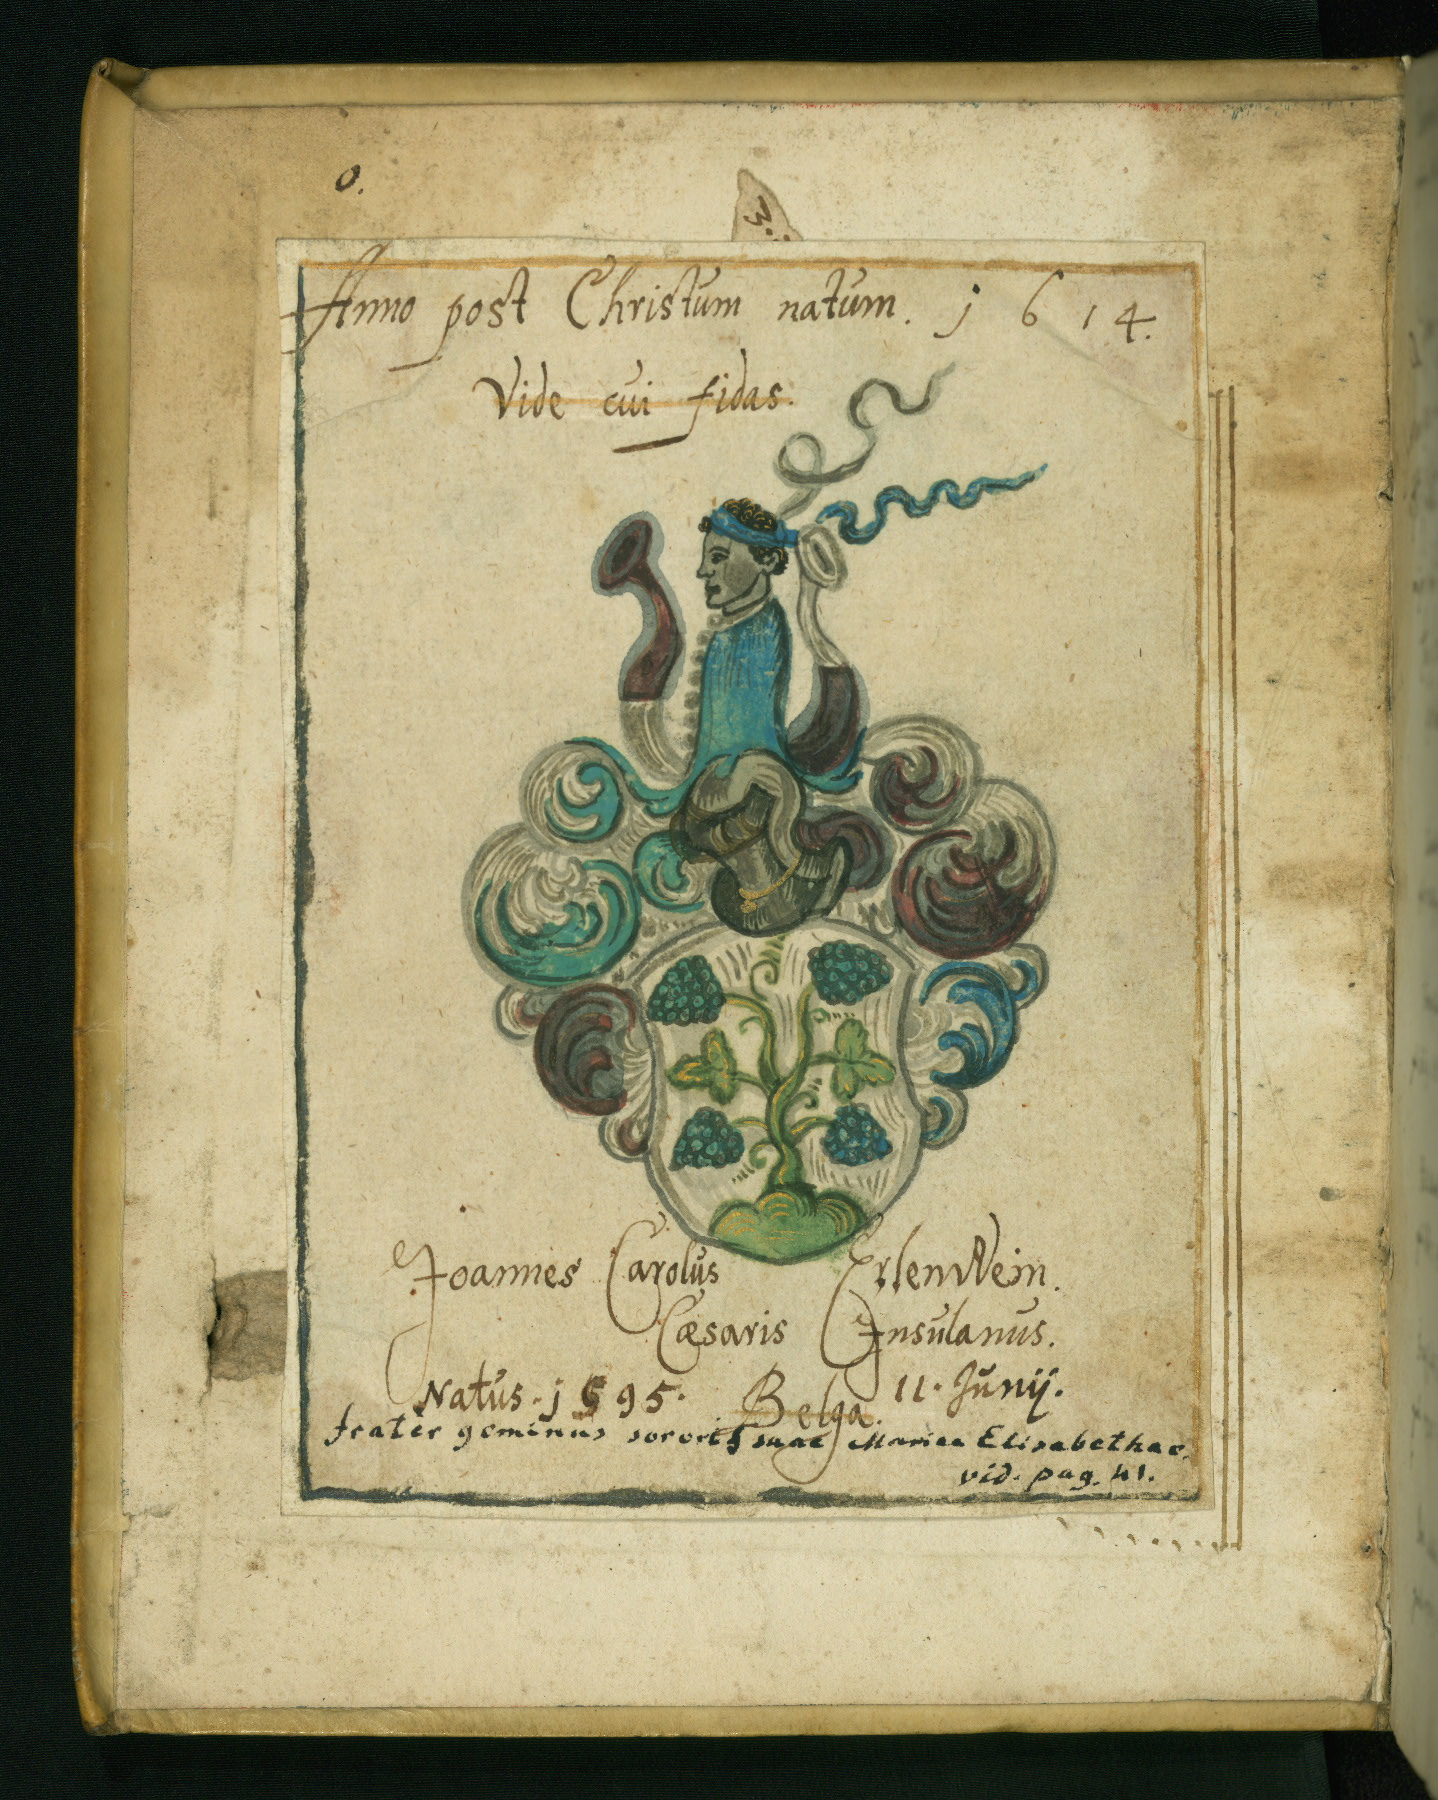 0.
3.
Anno post Christum natum. j 6 1 4.
Vide cui fidas.
Joannes Carolus ErlenWein.
Cæsaris Insulanus.
Natus. j 5 9 5. Belga. 11. Junij.
frater geminus sororis suae Mariae Elisabethae.
vid. pag. 41.